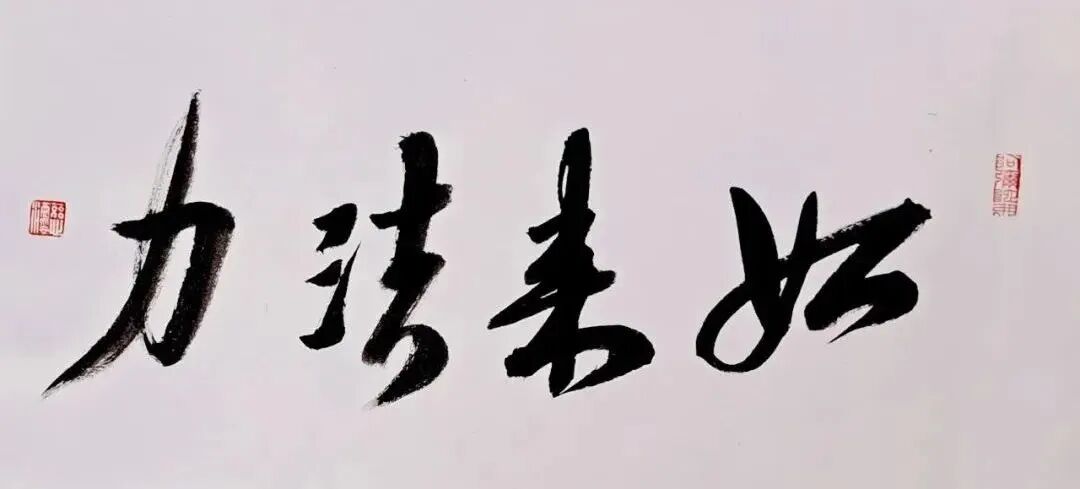 如来法力